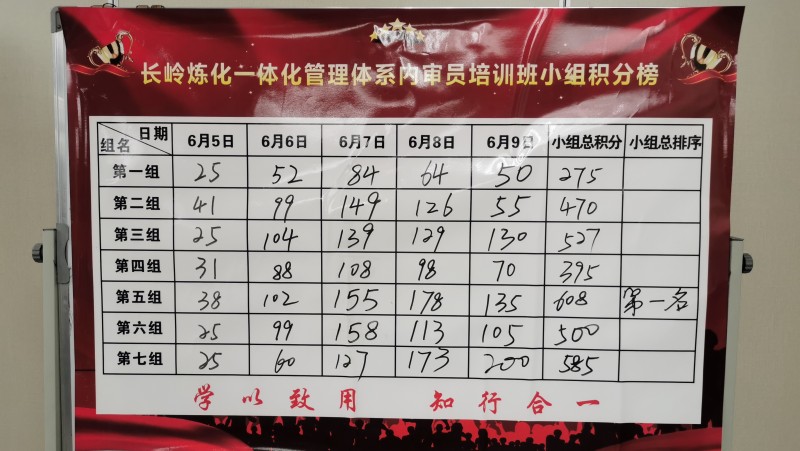 长岭炼化一体化管理体系内审员培训班小组积分榜
日期 组名 6月5日 6月6日 6月7日 6月8日 6月9日 小组总积分 小组总排序
第一组 25 52 84 64 50 275
第二组 41 99 149 126 55 470
第三组 25 104 139 129 130 527
第四组 31 88 108 98 70 395
第五组 38 102 155 178 135 608 第一名
第六组 25 99 158 113 105 500
第七组 25 60 127 173 200 585
学以致用 知行合一